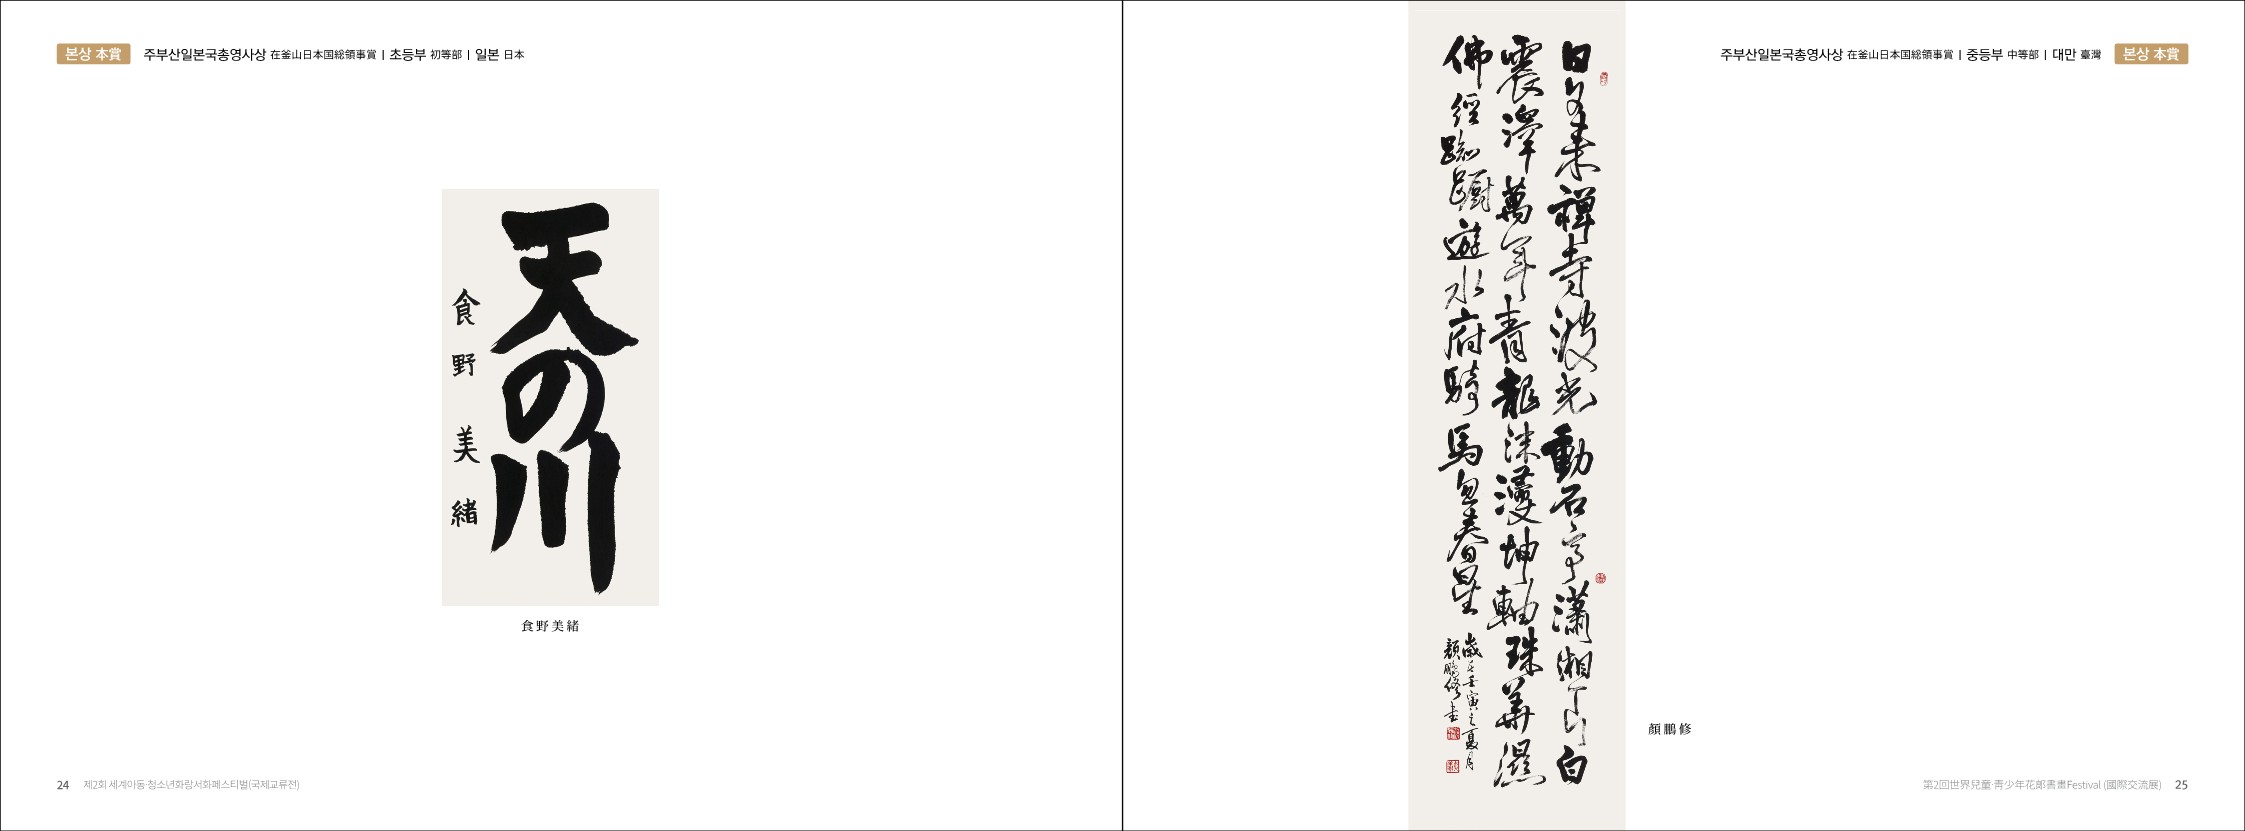 본상 本賞 주부산일본국총영사상 在釜山日本国総領事賞 | 초등부 初等部 | 일본 日本
天の川
食野美緒
食野美緒
24 제2회 세계아동·청소년화랑서화페스티벌(국제교류전)
주부산일본국총영사상 在釜山日本国総領事賞 | 중등부 中等部 | 대만 臺灣 본상 本賞
日 来禅寺波光動石亭瀟湘 白
震澤萬年青龍沫漫坤軸珠 濕
佛經 蹰遊水府騎馬 春星
歲 壬寅之夏月
顏鵬修書
顏鵬修
第2回世界兒童·靑少年花郞書畫Festival (國際交流展) 25